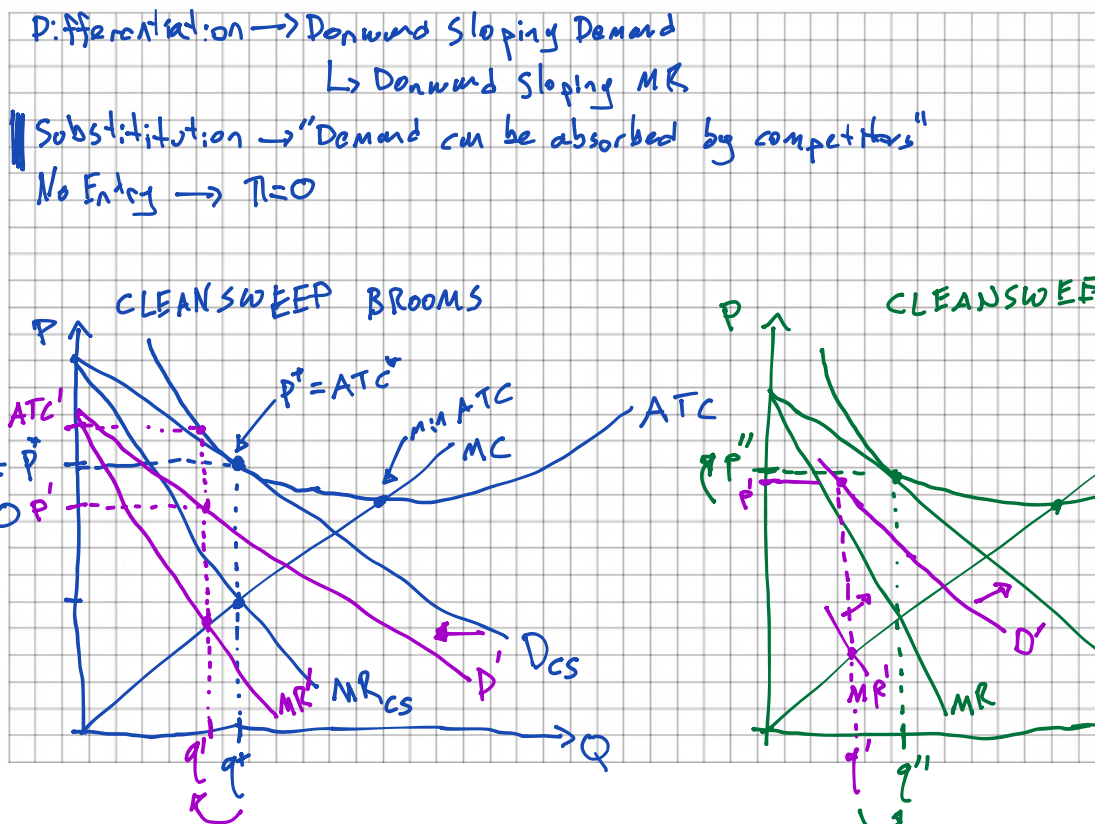 Differentiation → Donward Sloping Demand
↳ Donward Sloping MR
Substitution → "Demand can be absorbed by competitors"
No Entry → π=0
CLEANSWEEP BROOMS
P
ATC'
P* = ATC*
min ATC
MC
ATC
= P*
P'
D_CS
D'
MR'
MR_CS
Q
q'
q*
CLEANSWEE
P
P''
P'
D'
MR'
MR
q'
q''